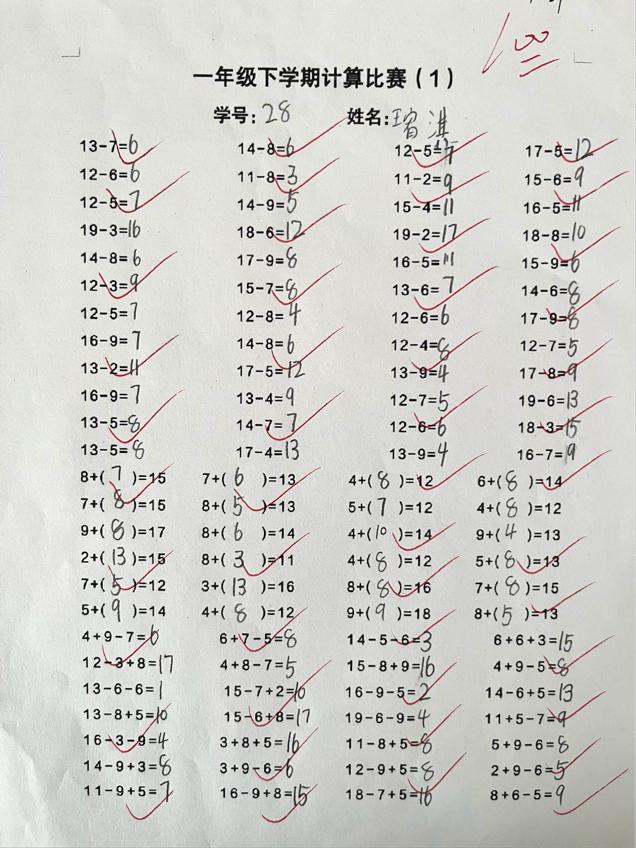 100
一年级下学期计算比赛（1）
学号：28 姓名：瑞淇
13-7=6 14-8=6 12-5=7 17-5=12
12-6=6 11-8=3 11-2=9 15-6=9
12-5=7 14-9=5 15-4=11 16-5=11
19-3=16 18-6=12 19-2=17 18-8=10
14-8=6 17-9=8 16-5=11 15-9=6
12-3=9 15-7=8 13-6=7 14-6=8
12-5=7 12-8=4 12-6=6 17-9=8
16-9=7 14-8=6 12-4=8 12-7=5
13-2=11 17-5=12 13-9=4 17-8=9
16-9=7 13-4=9 12-7=5 19-6=13
13-5=8 14-7=7 12-6=6 18-3=15
13-5=8 17-4=13 13-9=4 16-7=9
8+( 7 )=15 7+( 6 )=13 4+( 8 )=12 6+( 8 )=14
7+( 8 )=15 8+( 5 )=13 5+( 7 )=12 4+( 8 )=12
9+( 8 )=17 8+( 6 )=14 4+( 10 )=14 9+( 4 )=13
2+( 13 )=15 8+( 3 )=11 4+( 8 )=12 5+( 8 )=13
7+( 5 )=12 3+( 13 )=16 8+( 8 )=16 7+( 8 )=15
5+( 9 )=14 4+( 8 )=12 9+( 9 )=18 8+( 5 )=13
4+9-7=6 6+7-5=8 14-5-6=3 6+6+3=15
12-3+8=17 4+8-7=5 15-8+9=16 4+9-5=8
13-6-6=1 15-7+2=10 16-9-5=2 14-6+5=13
13-8+5=10 15-6+8=17 19-6-9=4 11+5-7=9
16-3-9=4 3+8+5=16 11-8+5=8 5+9-6=8
14-9+3=8 3+9-6=6 12-9+5=8 2+9-6=5
11-9+5=7 16-9+8=15 18-7+5=16 8+6-5=9